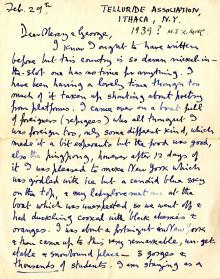 Feb. 29th
TELLURIDE ASSOCIATION,
ITHACA, N.Y.
1939?
Dear Olway & George,
I know I ought to have written
before but this country is so damn nickel-in-
the-slot one has no time for anything. I
have been having a lovely time though too
much of it taken up shouting about poetry
from platforms. I came over on a boat full
of foreigners (refugees) who all thought I
was foreign too, only some different kind, which
made it a bit exponents but the food was good,
also the pingpong, however after 12 days of
it I was pleased to meet New York which
was grilled with ice but a candid blue sky
on the top, & my met me at the
boat which was unexpected so we went off &
had duckling cooked with black cherries &
oranges. I was about a fortnight in New York
& then came up to this very remarkable, un-get-
atable & snowbound place — 3 gorges &
thousands of students. I am staying in a